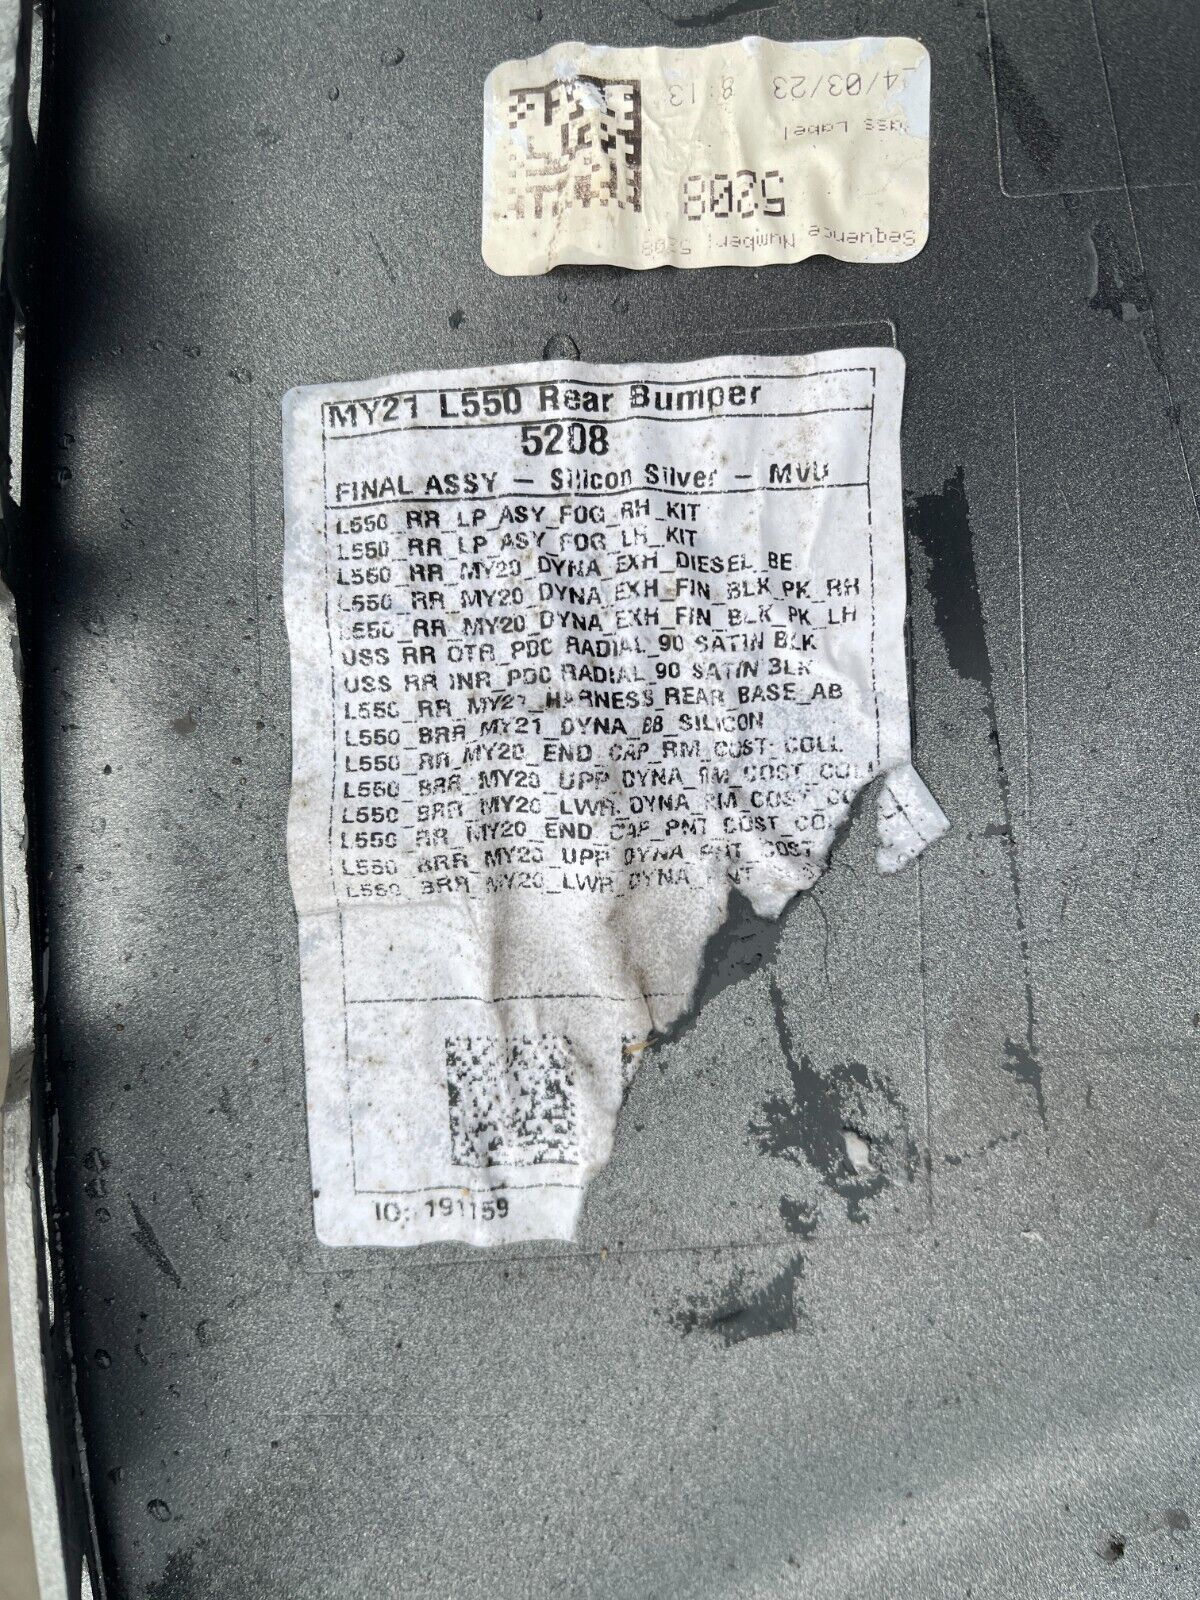 Sequence Number: 5208
5208
Pass Label
14/03/23 8:13
MY21 L550 Rear Bumper
5208
FINAL ASSY - Silicon Silver - MVU
L550_RR_LP_ASY_FOG_RH_KIT
L550_RR_LP_ASY_FOG_LH_KIT
L550_RR_MY20_DYNA_EXH_DIESEL_BE
L550_RR_MY20_DYNA_EXH_FIN_BLK_PK_RH
L550_RR_MY20_DYNA_EXH_FIN_BLK_PK_LH
USS RR OTR_PDC RADIAL_90 SATIN BLK
USS RR INR_PDC RADIAL_90 SATIN BLK
L550_RR_MY21_HARNESS_REAR_BASE_AB
L550_BRR_MY21_DYNA_BB_SILICON
L550_RR_MY20_END_CAP_RM_COST_COLL
L550_BRR_MY20_UPP_DYNA_RM_COST_COLL
L550_BRR_MY20_LWR_DYNA_RM_COST_CO
L550_RR_MY20_END_CAP_PNT_COST_CO
L550_BRR_MY20_UPP_DYNA_PNT_COST
L550_BRR_MY20_LWR_DYNA_PNT
ID: 191159